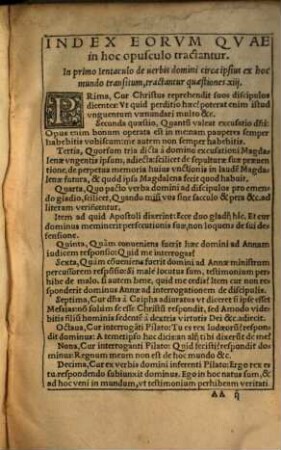 INDEX EORVM QVAE
in hoc opusculo tractantur.
In primo Ientaculo de uerbis domini circa ipsius ex hoc
mundo transitum, tractantur quæstiones xiij.
PRima, Cur Christus reprehendit suos discipulos
dicentes: Vt quid perditio hæc? poterat enim istud
vnguentum venundari multo &c.
Secunda quæstio, Quantū valeat excusatio dñi:
Opus enim bonum operata est in me: nam pauperes semper
habebitis vobiscum: me autem non semper habebitis.
Tertia, Quorsum tria dicta a domino excusationi Magda
lenæ vngentis ipsum, adiecta: scilicet de sepulturæ suæ præuen
tione, de perpetua memoria huius vnctionis in laudē Magda
lenæ futura, & quòd ipsa Magdalena fecit quod habuit,
Quarta, Quo pacto verba domini ad discipulos pro emen
do gladio, scilicet, Quando misi vos sine sacculo & pera &c. ad
literam verificentur.
Item ad quid Apostoli dixerint: Ecce duo gladij hîc. Et cur
dominus meminerit persecutionis suæ, non loquens de sui de=
fensione.
Quinta, Quàm conueniens fuerit hæc domini ad Annam
iudicem responsio: Quid me interrogas?
Sexta, Quàm cōueniens fuerit domini ad Annæ ministrum
percussorem respōsio: Si male locutus sum, testimonium per
hibe de malo. si autem bene, quid me cædis? Item cur non re
sponderit dominus Annæ ad interrogationem de discipulis.
Septima, Cur dñs à Caipha adiuratus vt diceret si ipse esset
Messias: nō solum se esse Christū respondit, sed Amodo vide
bitis filiū hominis sedentē à dextris virtutis Dei &c. adiecit.
Octaua, Cur interrogāti Pilato: Tu es rex Iudæorū? respondit
dominus: A temetipso hoc dicis: an alij tibi dixerūt de me?
Nona, Cur interroganti Pilato: Quid fecisti? respondit do=
minus: Regnum meum non est de hoc mundo &c.
Decima, Cur ex verbis domini inferenti Pilato: Ergo rex es
tu. respondendo subiunxit dominus. Ego in hoc natus sum, &
ad hoc veni in mundum, vt testimonium perhibeam veritati